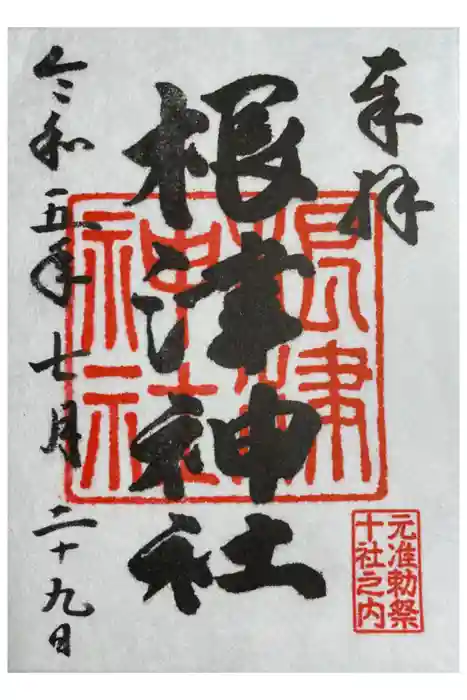 奉拝
根津神社
根津神社
元准勅祭
十社之内
令和五年七月二十九日